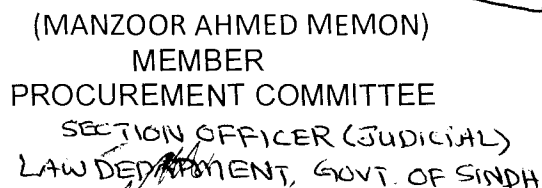 (MANZOOR AHMED MEMON)
MEMBER
PROCUREMENT COMMITTEE
SECTION OFFICER (JUDICIAL)
LAW DEPARTMENT, GOVT. OF SINDH